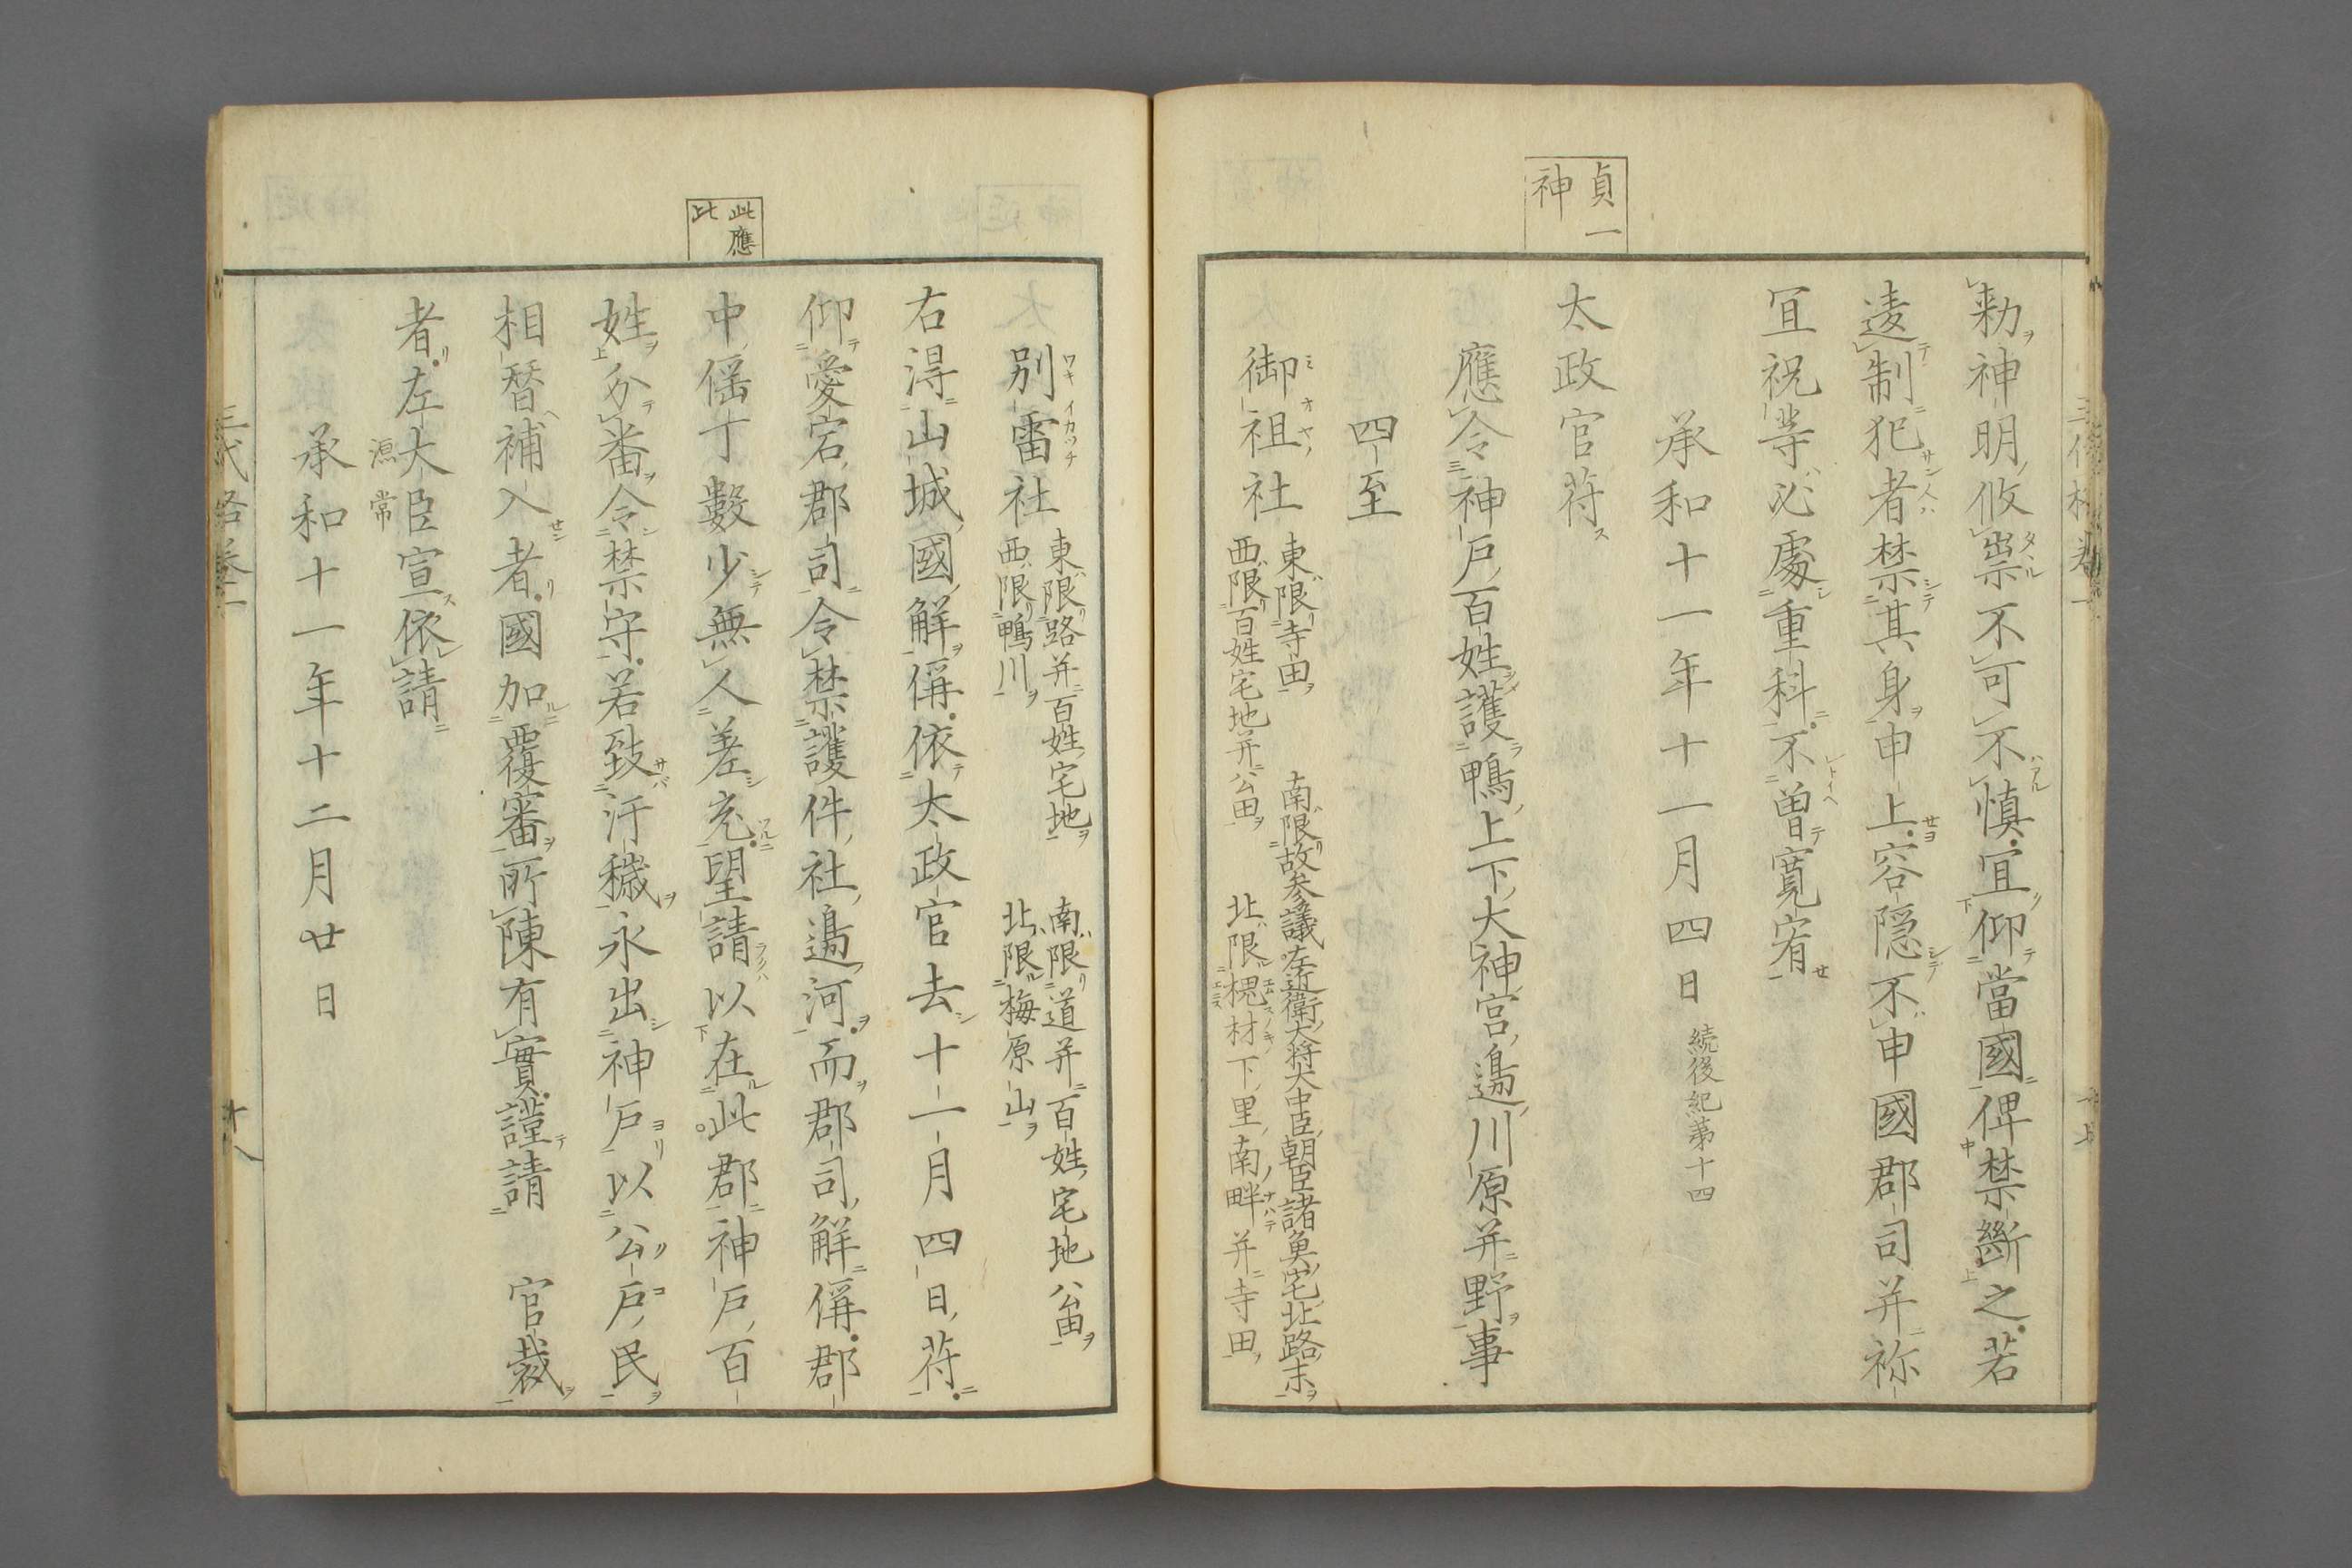 貞一
神
勅神明攸祟不可不慎宜仰當國俾禁斷之若
違制犯者禁其身申上容隠不申國郡司并祢
宜祝等必處重科不曽寛宥
承和十一年十一月四日 続後紀第十四
太政官符
應令神戸百姓護鴨上下大神宮邉川原并野事
四至
御祖社 東限寺田 南限故参議左近衛大将大中臣朝臣諸魚宅北路末
西限百姓宅地并公田 北限槐村下里南畔并寺田
此應
比
別雷社 東限路并百姓宅地 南限道并百姓宅地公田
西限鴨川 北限梅原山
右得山城國解偁依太政官去十一月四日符
仰愛宕郡司令禁護件社邉河而郡司解偁郡
中徭丁數少無人差充望請以在此郡神戸百
姓分番令禁守若致汙穢永出神戸以公戸民
相替補入者國加覆審所陳有實謹請 官裁
者左大臣宣依請
源常
承和十一年十二月廿日
三代格巻一
十八